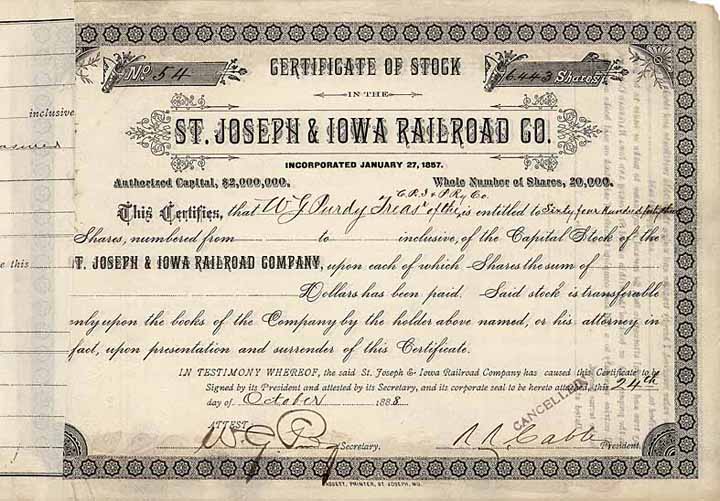 No. 54
CERTIFICATE OF STOCK
6443 Shares
IN THE
ST. JOSEPH & IOWA RAILROAD CO.
INCORPORATED JANUARY 27, 1857.
Authorized Capital, $2,000,000.
Whole Number of Shares, 20,000.
C.R.I & P Ry Co.
This Certifies, that W G Purdy Treas. of the is entitled to Sixty four hundred forty three
Shares, numbered from to inclusive, of the Capital Stock of the
T. JOSEPH & IOWA RAILROAD COMPANY, upon each of which Shares the sum of
Dollars has been paid. Said stock is transferable
only upon the books of the Company by the holder above named, or his attorney in
fact, upon presentation and surrender of this Certificate.
IN TESTIMONY WHEREOF, the said St. Joseph & Iowa Railroad Company has caused this Certificate to be
Signed by its President and attested by its Secretary, and its corporate seal to be hereto attached, this 24th
day of October 1888
CANCELLED
ATTEST
W. G. Purdy Secretary.
President.
PRINTER, ST. JOSEPH, MO.
inclusive
e this